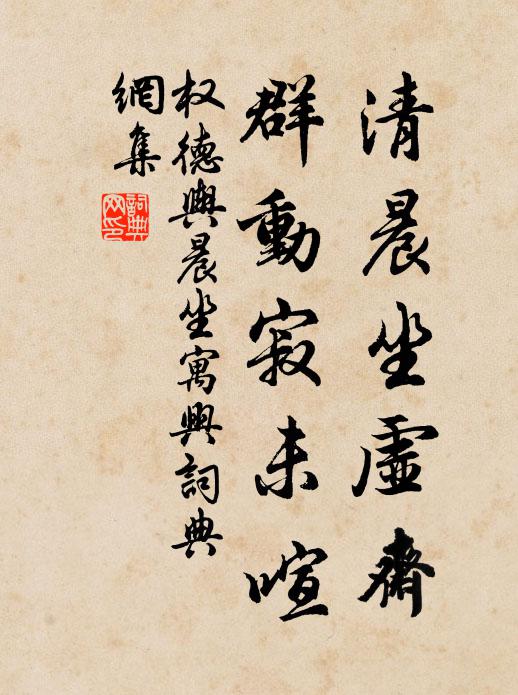 清晨坐虛齋
群動寂未喧
权德輿晨坐寓興詞典
網集
詞典
网印